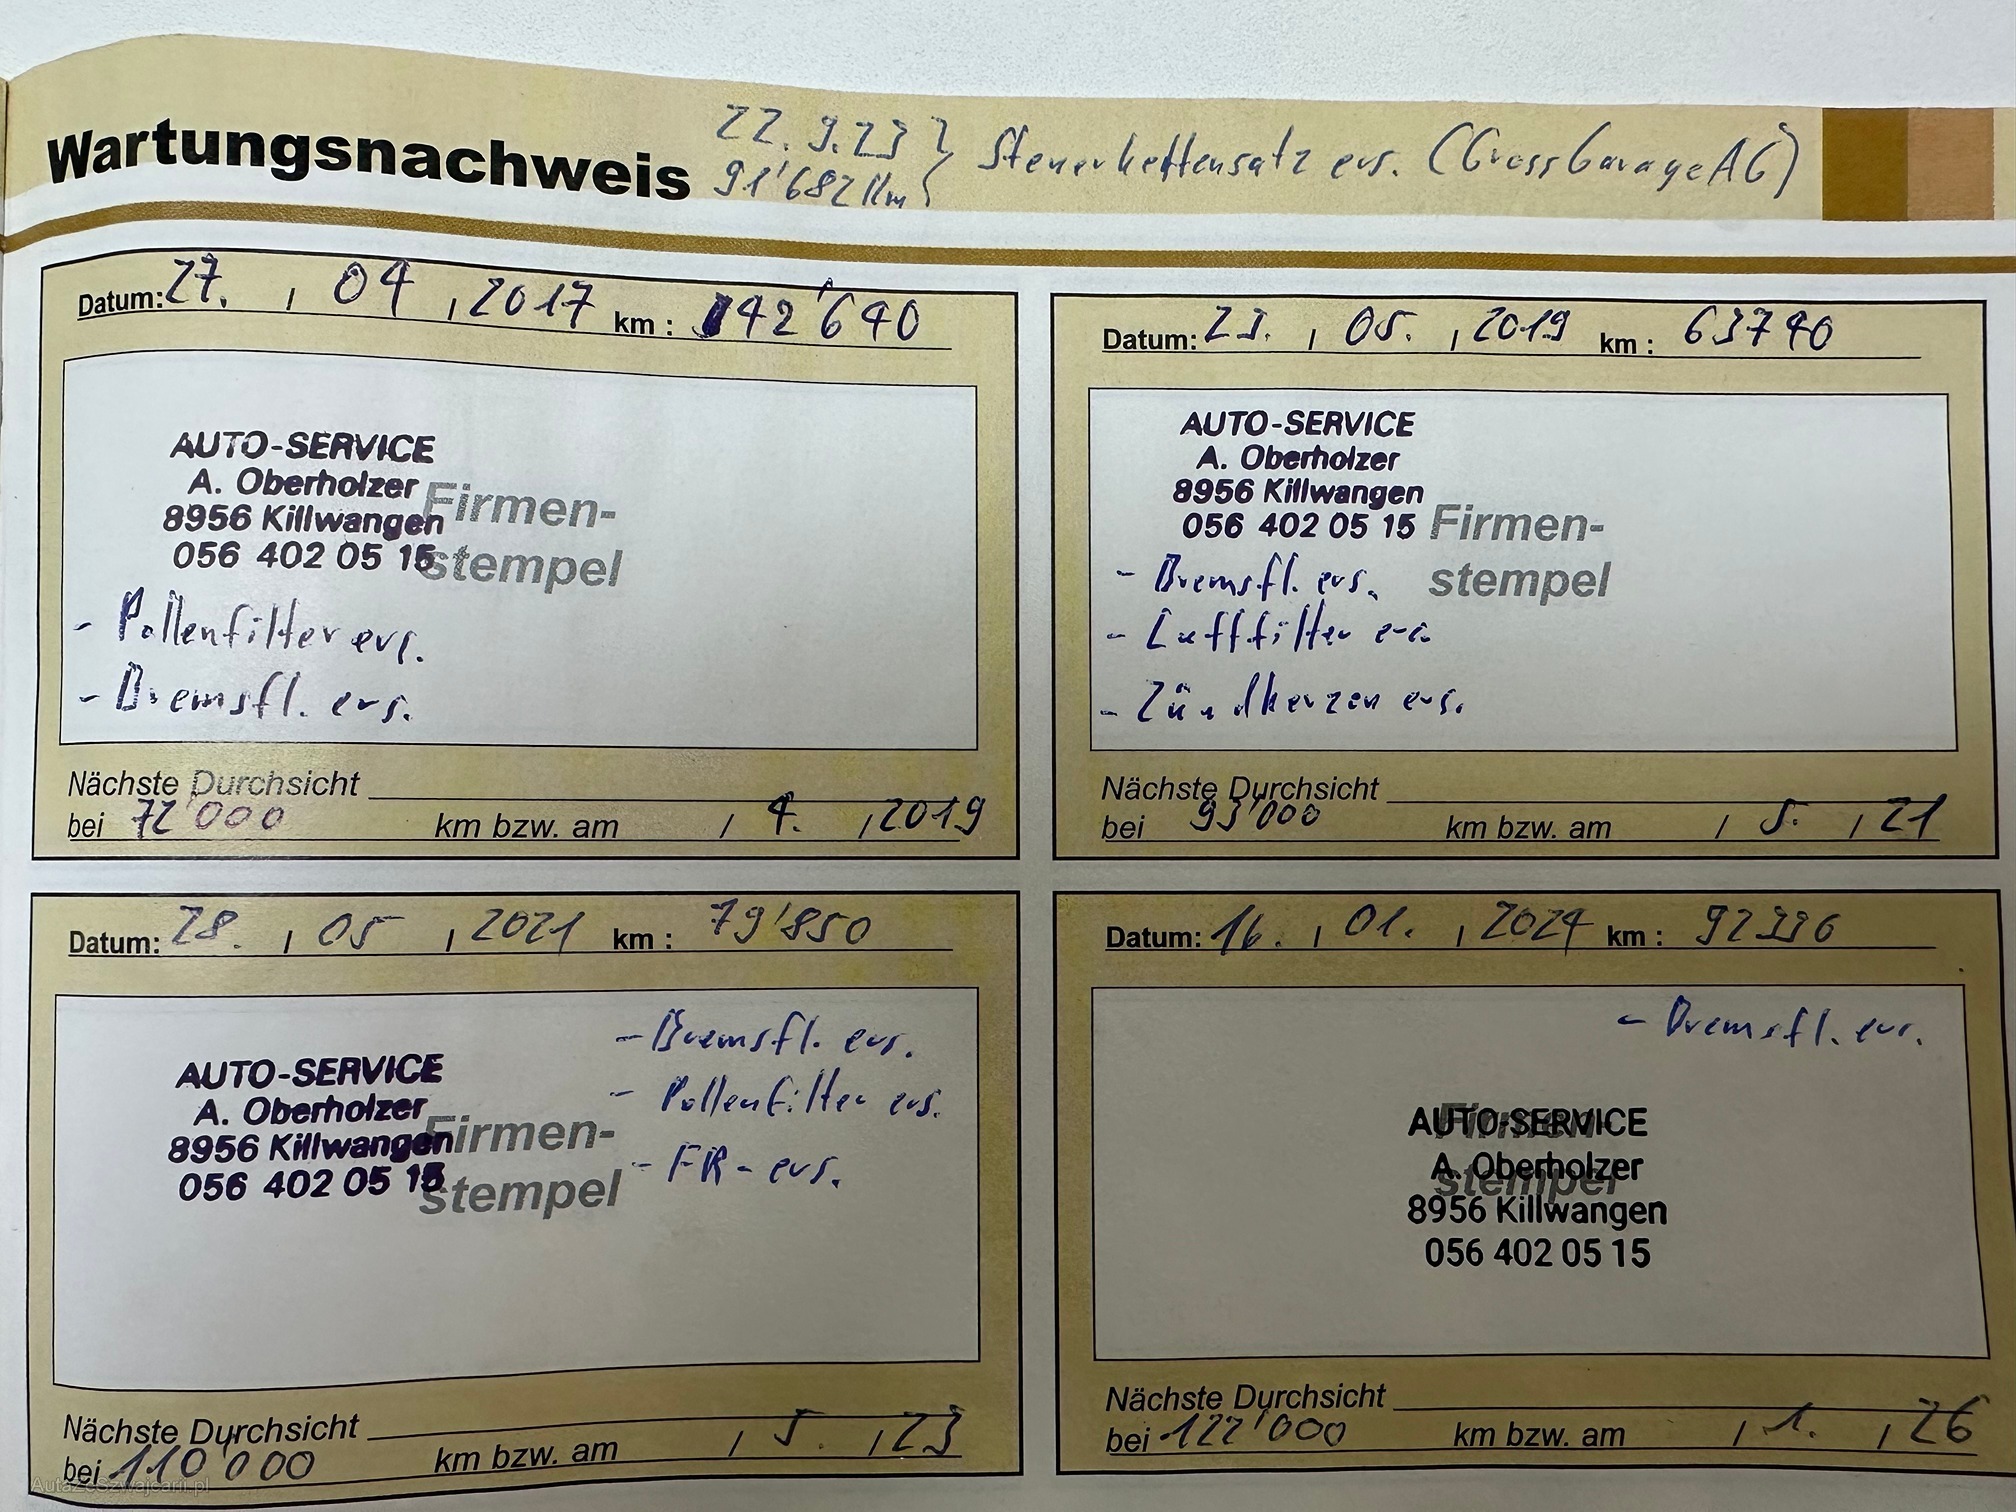 Wartungsnachweis
22.9.23 } Steuerkettensatz ers. (Gross Garage AG)
91'682 Km
Datum: 27. / 04 / 2017 km : 42'640
AUTO-SERVICE
A. Oberholzer
8956 Killwangen
056 402 05 15
Firmen-
stempel
- Pollenfilter ers.
- Bremsfl. ers.
Nächste Durchsicht
bei 72'000 km bzw. am / 4. / 2019
Datum: 23. / 05. / 2019 km : 63740
AUTO-SERVICE
A. Oberholzer
8956 Killwangen
056 402 05 15
Firmen-
stempel
- Bremsfl. ers.
- Luftfilter ers.
- Zündkerzen ers.
Nächste Durchsicht
bei 93'000 km bzw. am / 5. / 21
Datum: 28. / 05 / 2021 km : 79'850
- Bremsfl. ers.
- Pollenfilter ers.
- FR - ers.
AUTO-SERVICE
A. Oberholzer
8956 Killwangen
056 402 05 15
Firmen-
stempel
Nächste Durchsicht
bei 110'000 km bzw. am / 5. / 23
Datum: 16. / 01. / 2024 km :
- Bremsfl. ers.
AUTO-SERVICE
A. Oberholzer
8956 Killwangen
056 402 05 15
Firmen-
stempel
Nächste Durchsicht
bei 122'000 km bzw. am / 1. / 26
AutaZeSzwajcarii.pl